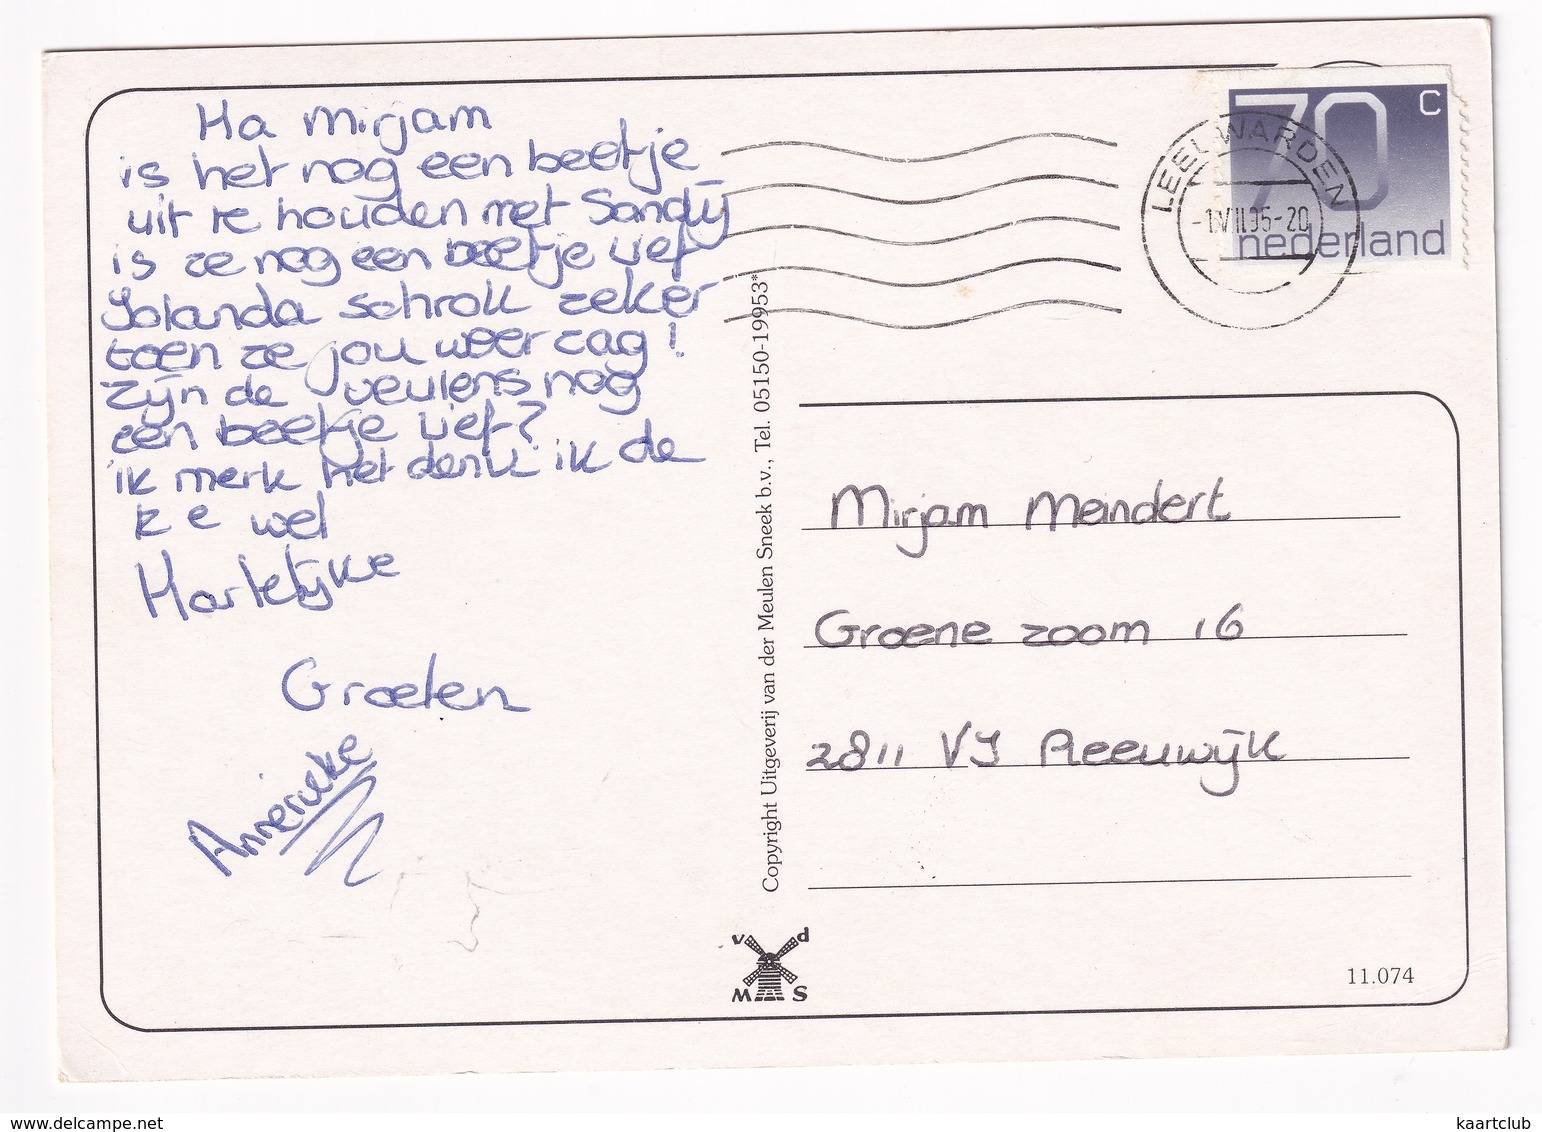 Ha Mirjam
is het nog een beetje
uit te houden met Sandy
is ze nog een beetje lief
Yolanda schrok zeker
toen ze jou weer zag!
Zijn de veulens nog
een beetje lief?
ik merk het denk ik de
e wel
Hartelijke
Groeten
Annerieke
70 c
nederland
LEEUWARDEN
-1.VII.95-20
Copyright Uitgeverij van der Meulen Sneek b.v., Tel. 05150-19953*
Mirjam Meindert
Groene zoom 16
2811 VJ Reeuwijk
v d
M S
11.074
www.delcampe.net
kaartclub